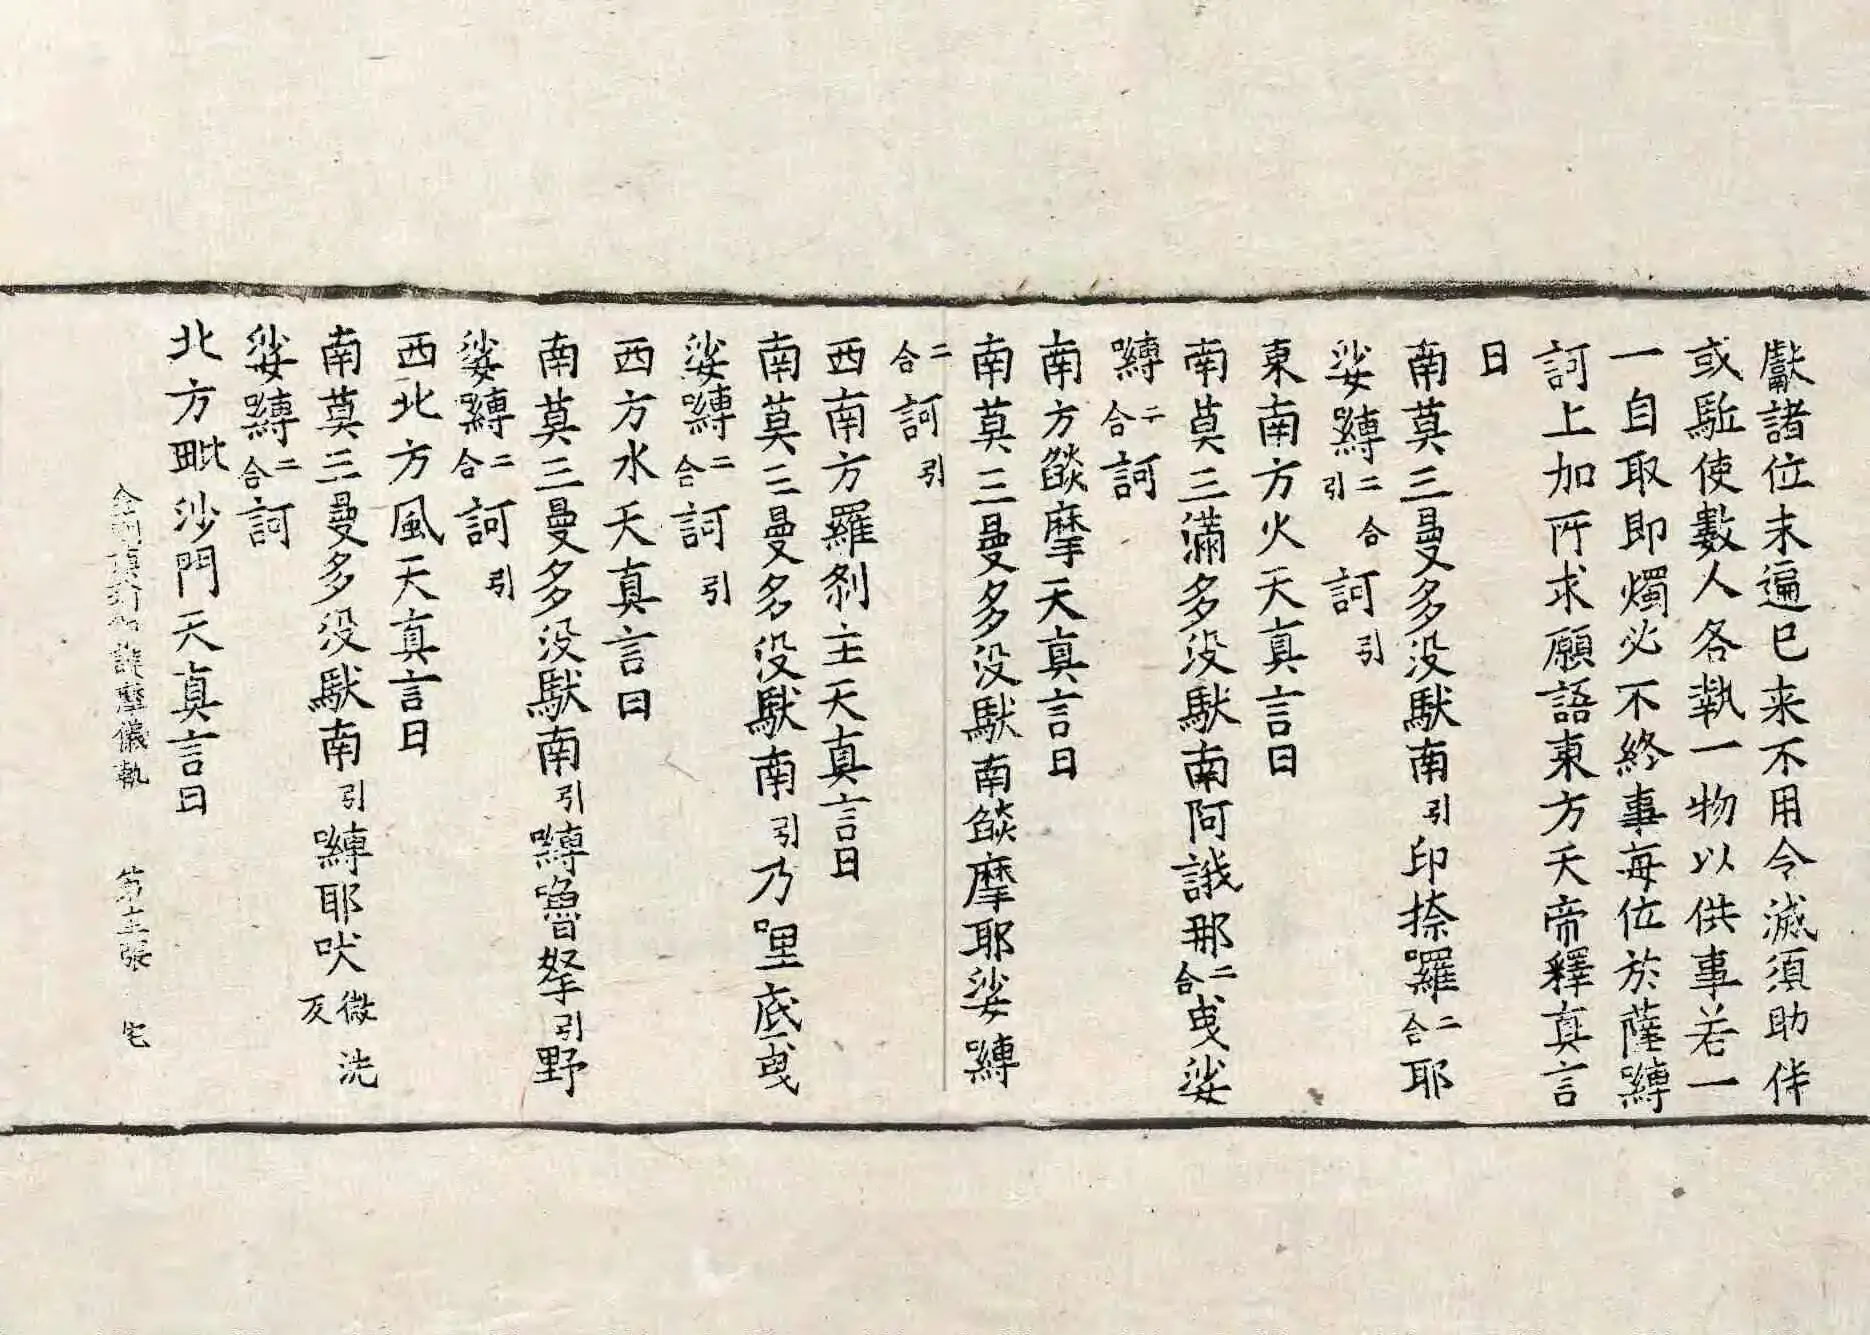 獻諸位未遍已来不用令滅須助伴
或駈使數人各執一物以供事若一
一自取即燭必不終事每位於薩嚩
訶上加所求願語東方天帝釋真言
曰
南莫三曼多没馱南引印捺囉二合耶
娑嚩二合引訶引
東南方火天真言曰
南莫三滿多没馱南阿誐那二合曳娑
嚩二合訶
南方燄摩天真言曰
南莫三曼多没馱南燄摩耶娑嚩
二合訶引
西南方羅剎主天真言曰
南莫三曼多没馱南引乃哩底曳
娑嚩二合訶引
西方水天真言曰
南莫三曼多没馱南引嚩嚕拏引野
娑嚩二合訶引
西北方風天真言曰
南莫三曼多没馱南引嚩耶吠微洗反
娑嚩二合訶
北方毗沙門天真言曰
金剛頂 護摩儀軌 第 張 宅